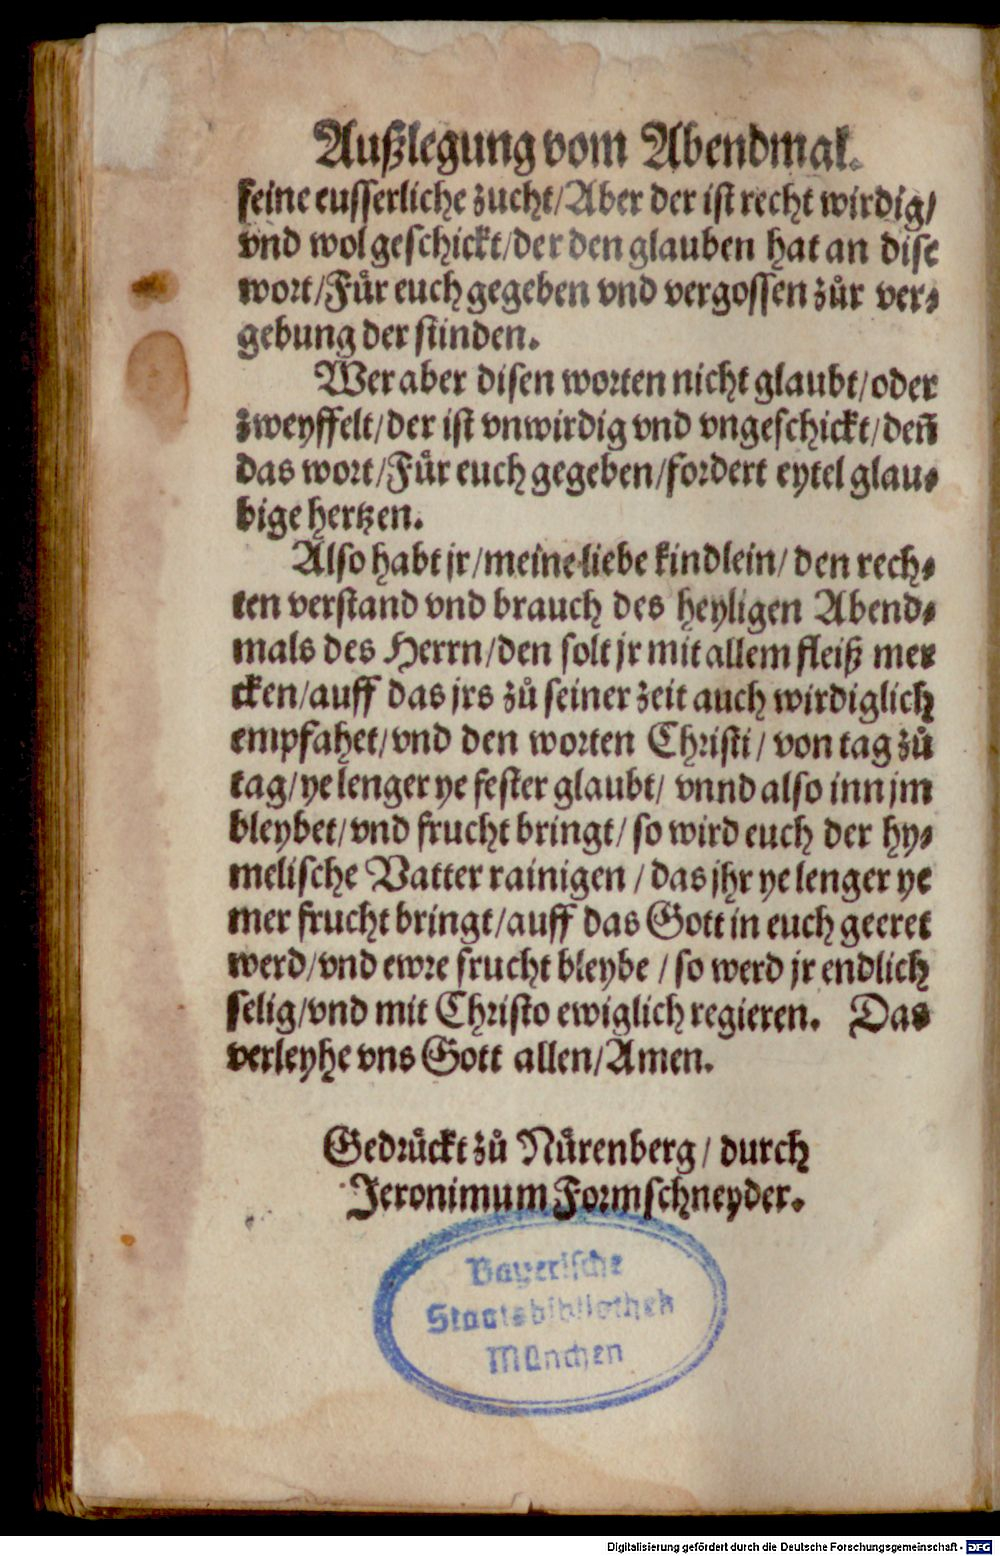 Außlegung vom Abendmal.
feine eusserliche zucht/Aber der ist recht wirdig/
vnd wol geschickt/der den glauben hat an dise
wort/Fuͤr euch gegeben vnd vergossen zuͦr ver⸗
gebung der suͤnden.
Wer aber disen worten nicht glaubt/oder
zweyffelt/der ist vnwirdig vnd vngeschickt/deñ
das wort/Fuͤr euch gegeben/fordert eytel glau⸗
bige hertzen.
Also habt jr/meine liebe kindlein/den rech⸗
ten verstand vnd brauch des heyligen Abend⸗
mals des Herrn/den solt jr mit allem fleiß mer
cken/auff das jrs zuͦ seiner zeit auch wirdiglich
empfahet/vnd den worten Christi/von tag zuͦ
tag/ye lenger ye fester glaubt/vnnd also inn jm
bleybet/vnd frucht bringt/so wird euch der hy⸗
melische Vatter rainigen/das jhr ye lenger ye
mer frucht bringt/auff das Gott in euch geeret
werd/vnd ewre frucht bleybe/so werd jr endlich
selig/vnd mit Christo ewiglich regieren. Das
verleyhe vns Gott allen/Amen.
Gedruͤckt zuͦ Nuͤrenberg/durch
Jeronimum Formschneyder.
Bayerische
Staatsbibliothek
München
Digitalisierung gefördert durch die Deutsche Forschungsgemeinschaft - DFG